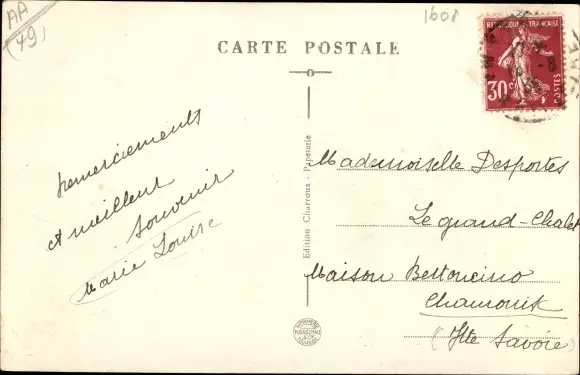 AA
(49)
1608
CARTE POSTALE
REPUBLIQUE FRANÇAISE
30c
POSTES
remerciements
et meilleur
souvenir
Marie Louise
Edition Charroux - Papeterie
Mademoiselle Desportes
Le grand-Chalet
Maison Bettoncino
Chamonix
(Hte Savoie)